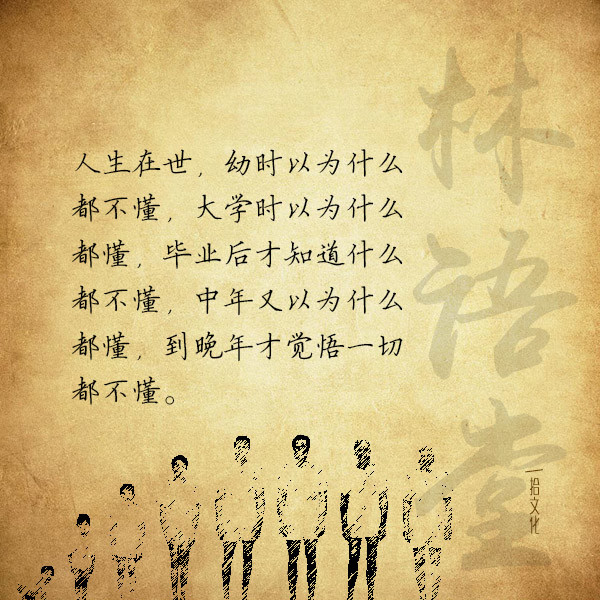 人生在世，幼时以为什么
都不懂，大学时以为什么
都懂，毕业后才知道什么
都不懂，中年又以为什么
都懂，到晚年才觉悟一切
都不懂。
林语堂
一拾文化